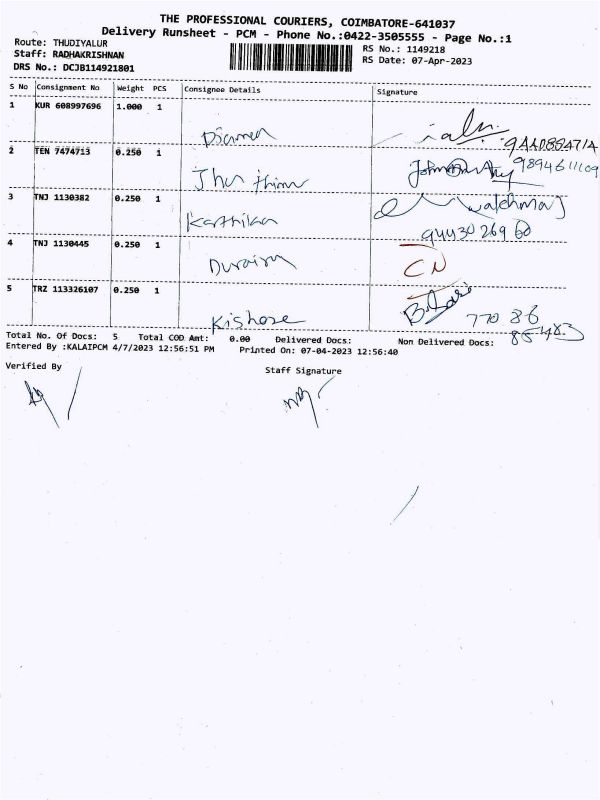 THE PROFESSIONAL COURIERS, COIMBATORE-641037
Delivery Runsheet - PCM - Phone No.:0422-3505555 - Page No.:1
Route: THUDIYALUR
Staff: RADHAKRISHNAN
DRS No.: DCJB114921801
RS No.: 1149218
RS Date: 07-Apr-2023
S No Consignment No Weight PCS Consignee Details Signature
1 KUR 608997696 1.000 1
2 TEN 7474713 0.250 1
9894611109
3 TNJ 1130382 0.250 1 Karthika
9443026960
4 TNJ 1130445 0.250 1 CN
5 TRZ 113326107 0.250 1 Kishore
770 86
Total No. Of Docs: 5 Total COD Amt: 0.00 Delivered Docs: Non Delivered Docs:
Entered By :KALAIPCM 4/7/2023 12:56:51 PM Printed On: 07-04-2023 12:56:40
Verified By Staff Signature